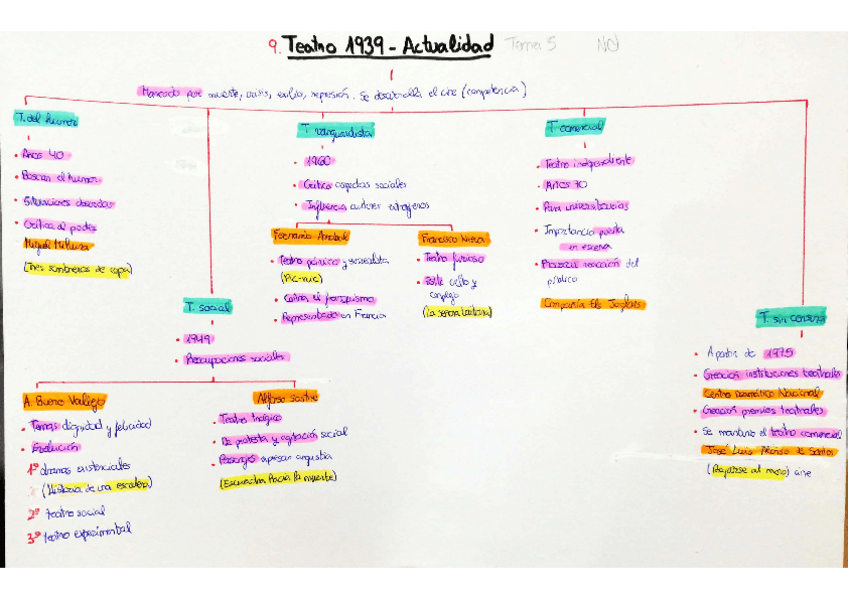 9. Teatro 1939 - Actualidad Tema 5 NO
Marcado por muerte, crisis, exilio, represión. Se desarrolla el cine (competencia)
T. del humor
• Años 40
• Buscan el humor
• Situaciones absurdas
• Crítica al poder
Miguel Mihura
(Tres sombreros de copa)
T. social
• 1949
• Preocupaciones sociales
A. Buero Vallejo
• Temas dignidad y felicidad
• Evolución
1º dramas existenciales
(Historia de una escalera)
2º teatro social
3º teatro experimental
Alfonso Sastre
• Teatro trágico
• De protesta y agitación social
• Personajes apresan angustia
(Escuadra hacia la muerte)
T. vanguardista
• 1960
• Critica sociales
• Influencia autores extranjeros
Fernando Arrabal
• Teatro pánico y surrealista
(Pic-nic)
• Contra el franquismo
• Representado en Francia
Francisco Nieva
• Teatro furioso
• culto y complejo
(La señora tártara)
T. comercial
• Teatro independiente
• Años 70
• Para universitarios
• Importancia puesta
en escena
• Provocar reacción del
público
Compañía Els Joglars
T. sin censura
• A partir de 1975
• Creación instituciones teatrales
Centro Dramático Nacional
• Creación premios teatrales
• Se mantuvo el teatro comercial
José Luis Alonso de Santos
(Bajarse al moro) cine